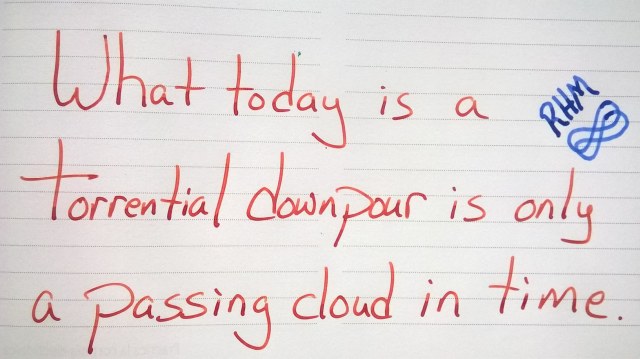 What today is a
RHM
torrential downpour is only
a passing cloud in time.